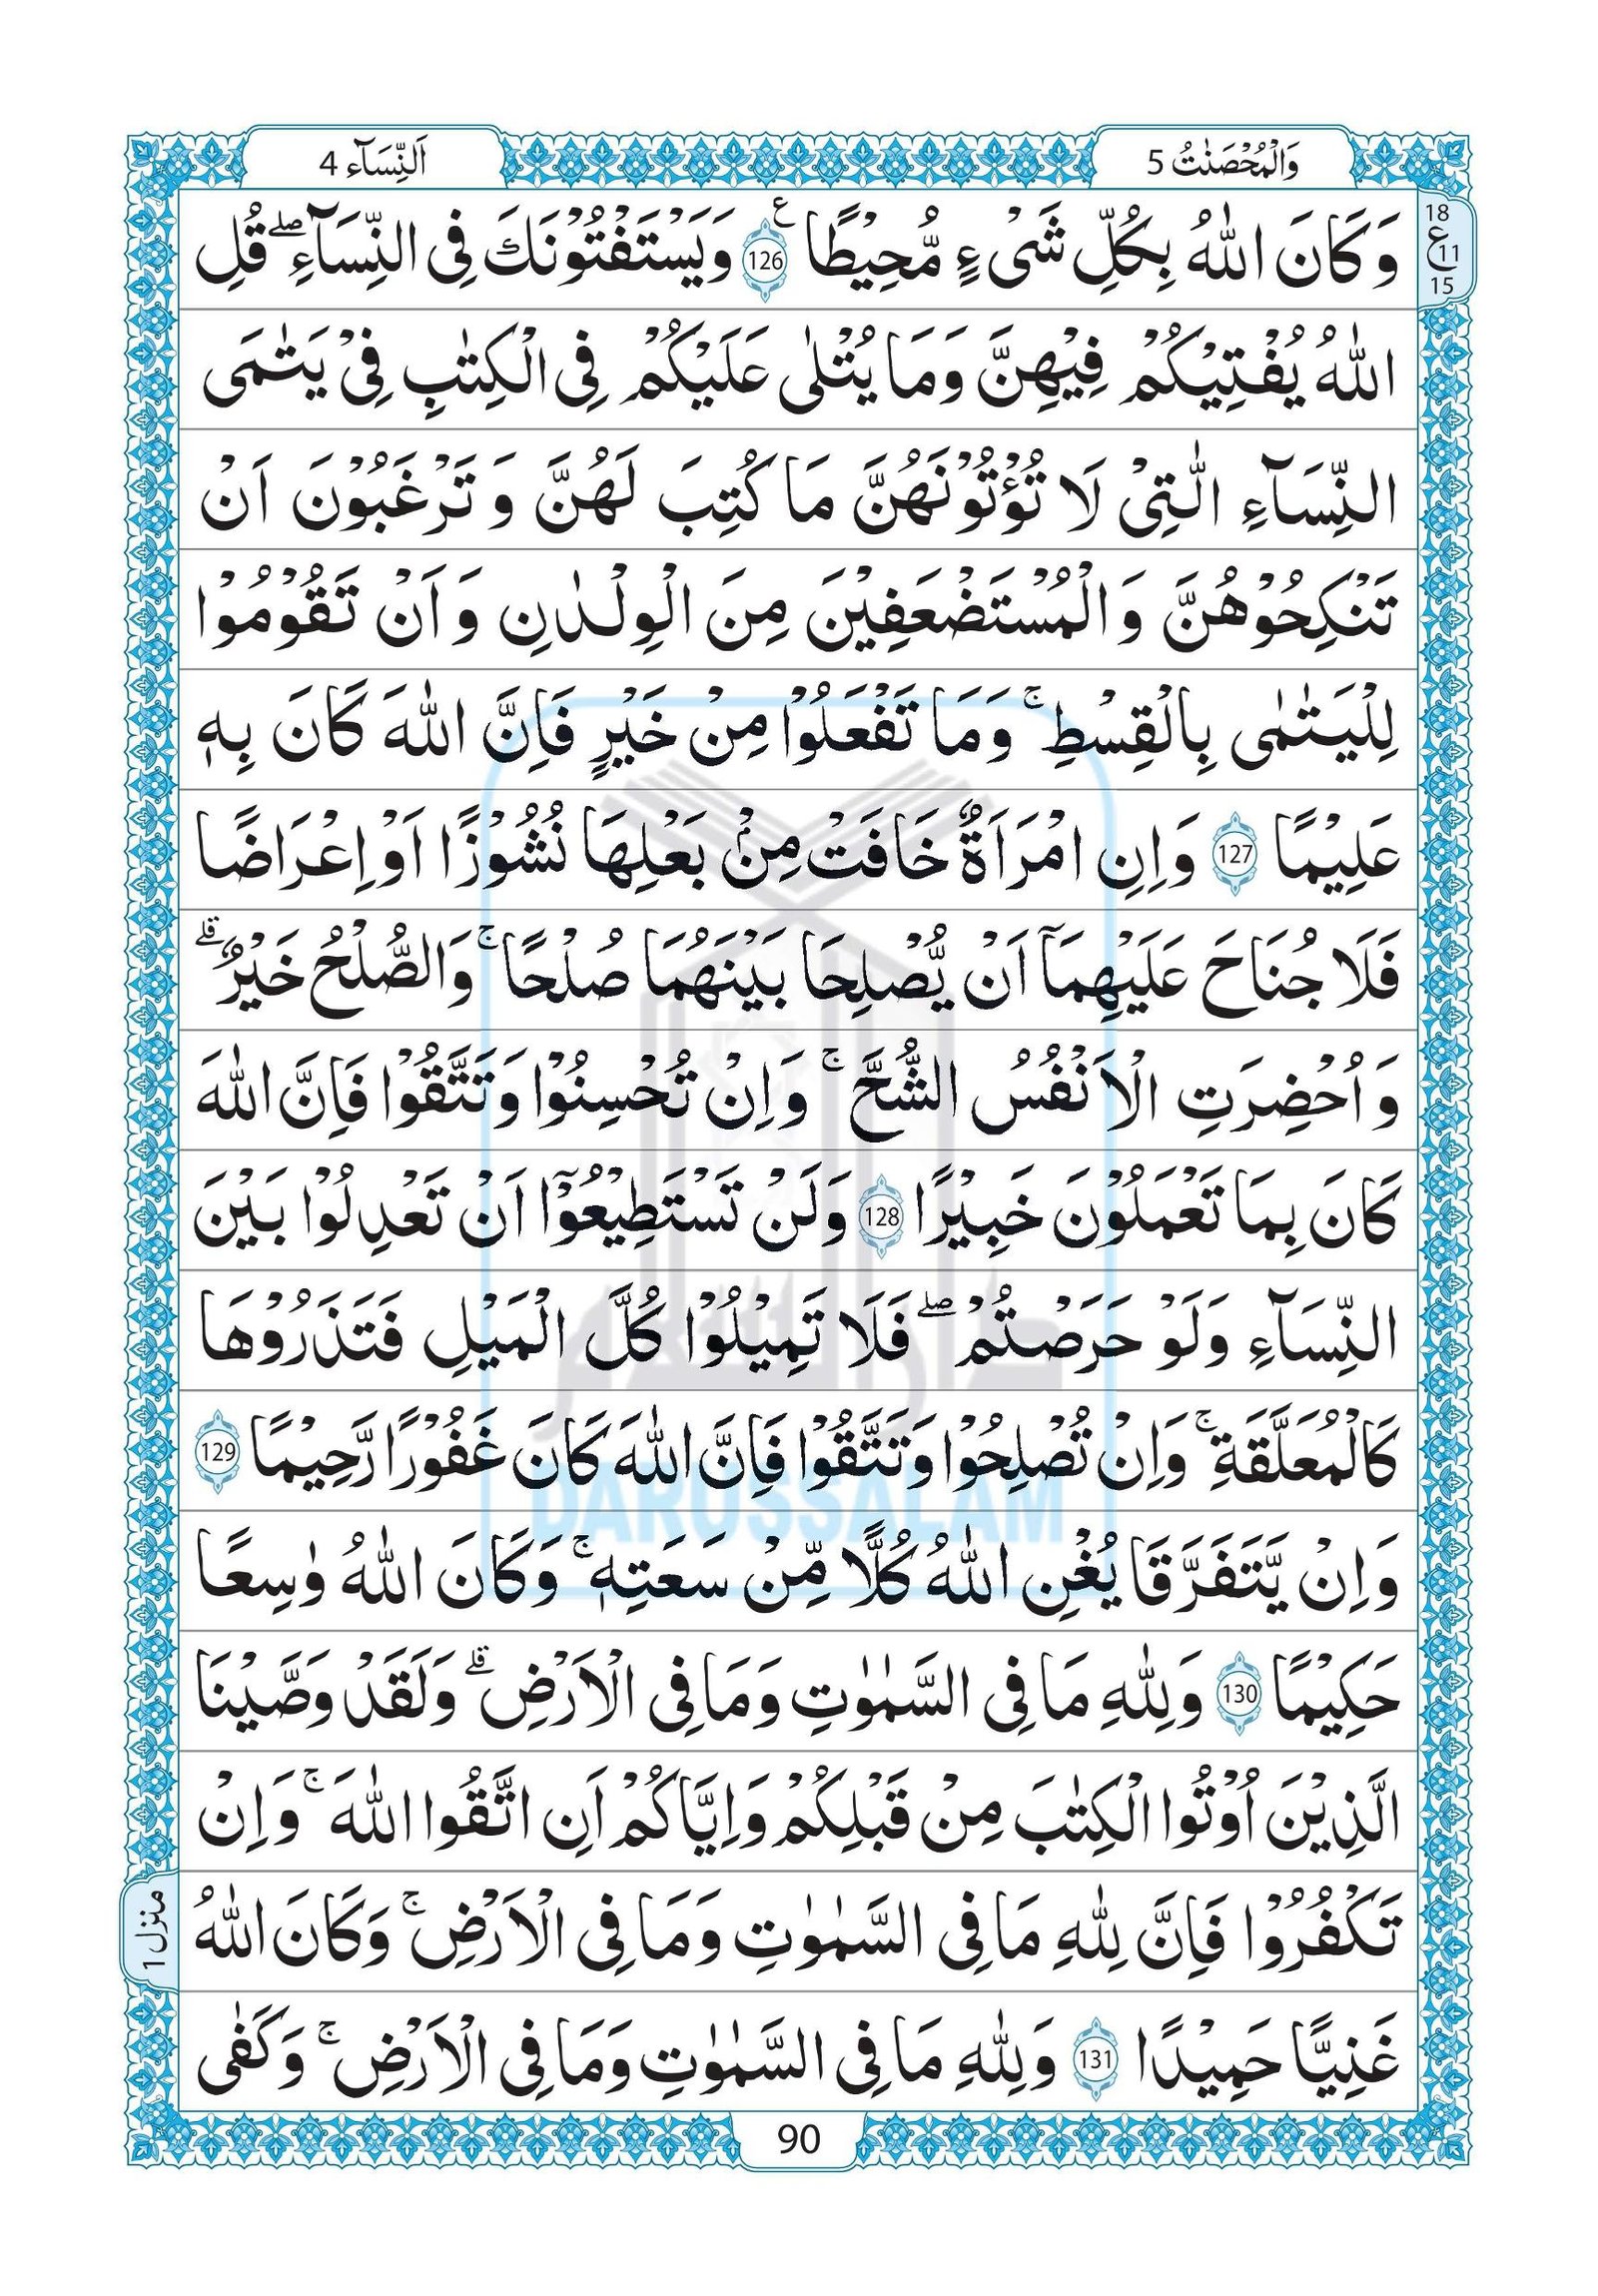 وَالْمُحْصَنٰتُ 5
اَلنِّسَآء 4
18
ع
11
15
وَكَانَ اللّٰهُ بِكُلِّ شَیْءٍ مُّحِیْطًا ع 126 وَیَسْتَفْتُوْنَكَ فِی النِّسَآءِ ؕ قُلِ
اللّٰهُ یُفْتِیْكُمْ فِیْهِنَّ وَمَا یُتْلٰی عَلَیْكُمْ فِی الْكِتٰبِ فِیْ یَتٰمَی
النِّسَآءِ الّٰتِیْ لَا تُؤْتُوْنَهُنَّ مَا كُتِبَ لَهُنَّ وَ تَرْغَبُوْنَ اَنْ
تَنْكِحُوْهُنَّ وَالْمُسْتَضْعَفِیْنَ مِنَ الْوِلْدٰنِ وَاَنْ تَقُوْمُوْا
لِلْیَتٰمٰی بِالْقِسْطِ ۚ وَمَا تَفْعَلُوْا مِنْ خَیْرٍ فَاِنَّ اللّٰهَ كَانَ بِهٖ
عَلِیْمًا 127 وَاِنِ امْرَاَةٌ خَافَتْ مِنْۢ بَعْلِهَا نُشُوْزًا اَوْ اِعْرَاضًا
فَلَا جُنَاحَ عَلَیْهِمَاۤ اَنْ یُّصْلِحَا بَیْنَهُمَا صُلْحًا ۚ وَالصُّلْحُ خَیْرٌ ۗ
وَاُحْضِرَتِ الْاَنْفُسُ الشُّحَّ ۚ وَاِنْ تُحْسِنُوْا وَتَتَّقُوْا فَاِنَّ اللّٰهَ
كَانَ بِمَا تَعْمَلُوْنَ خَبِیْرًا 128 وَلَنْ تَسْتَطِیْعُوْۤا اَنْ تَعْدِلُوْا بَیْنَ
النِّسَآءِ وَلَوْ حَرَصْتُمْ ۖ فَلَا تَمِیْلُوْا كُلَّ الْمَیْلِ فَتَذَرُوْهَا
كَالْمُعَلَّقَةِ ۚ وَاِنْ تُصْلِحُوْا وَتَتَّقُوْا فَاِنَّ اللّٰهَ كَانَ غَفُوْرًا رَّحِیْمًا 129
وَاِنْ یَّتَفَرَّقَا یُغْنِ اللّٰهُ كُلًّا مِّنْ سَعَتِهٖ ۚ وَكَانَ اللّٰهُ وٰسِعًا
حَكِیْمًا 130 وَلِلّٰهِ مَا فِی السَّمٰوٰتِ وَمَا فِی الْاَرْضِ ۗ وَلَقَدْ وَصَّیْنَا
الَّذِیْنَ اُوْتُوا الْكِتٰبَ مِنْ قَبْلِكُمْ وَاِیَّاكُمْ اَنِ اتَّقُوا اللّٰهَ ۚ وَاِنْ
تَكْفُرُوْا فَاِنَّ لِلّٰهِ مَا فِی السَّمٰوٰتِ وَمَا فِی الْاَرْضِ ۚ وَكَانَ اللّٰهُ
غَنِیًّا حَمِیْدًا 131 وَلِلّٰهِ مَا فِی السَّمٰوٰتِ وَمَا فِی الْاَرْضِ ۚ وَكَفٰی
منزل 1
90
دار السلام
DARUSSALAM